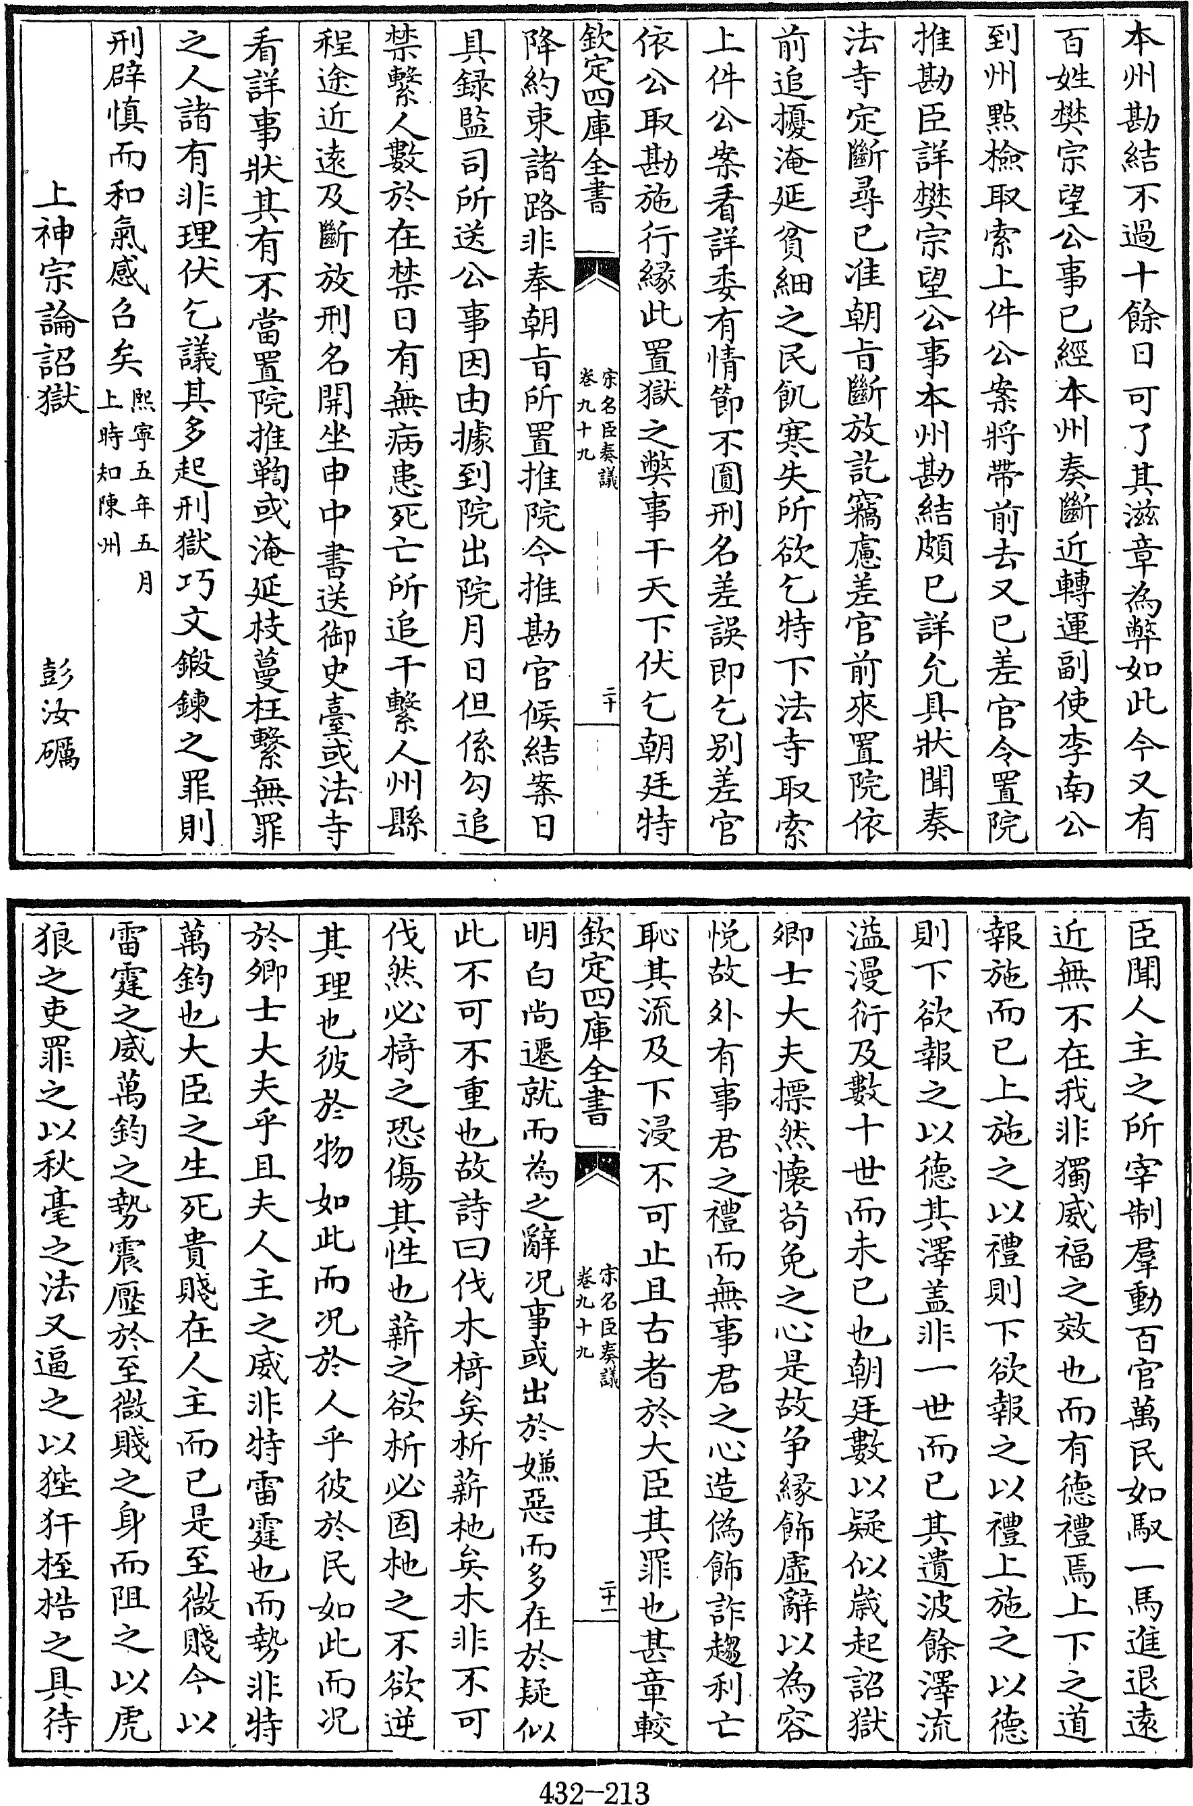 本州勘結不過十餘日可了其滋章為弊如此今又有
百姓樊宗望公事已經本州奏斷近轉運副使李南公
到州㸃檢取索上件公案將帶前去又已差官令置院
推勘臣詳樊宗望公事本州勘結頗已詳允具狀聞奏
法寺定斷尋已准朝㫖斷放訖竊慮差官前來置院依
前追擾淹延貧細之民飢寒失所欲乞特下法寺取索
上件公案看詳委有情節不圓刑名差誤即乞别差官
依公取勘施行縁此置獄之弊事干天下伏乞朝廷特
欽定四庫全書
宋名臣奏議
卷九十九
二十
降約束諸路非奉朝㫖所置推院令推勘官候結案日
具録監司所送公事因由據到院出院月日但係勾追
禁繫人數於在禁日有無病患死亡所追干繫人州縣
程途近遠及斷放刑名開坐申中書送御史臺或法寺
看詳事狀其有不當置院推鞫或淹延枝蔓枉繫無罪
之人諸有非理伏乞議其多起刑獄巧文鍛鍊之罪則
刑辟慎而和氣感召矣
熙寧五年五月
上時知陳州
上神宗論詔獄　彭汝礪
臣聞人主之所宰制羣動百官萬民如馭一馬進退逺
近無不在我非獨威福之效也而有德禮焉上下之道
報施而已上施之以禮則下欲報之以禮上施之以德
則下欲報之以德其澤盖非一世而已其遺波餘澤流
溢漫衍及數十世而未已也朝廷數以疑似嵗起詔獄
卿士大夫摽然懐茍免之心是故争縁飾虛辭以為容
悦故外有事君之禮而無事君之心造偽飾詐趨利亡
恥其流及下浸不可止且古者於大臣其罪也甚章較
欽定四庫全書
宋名臣奏議
卷九十九
二十一
明白尚遷就而為之辭况事或出於嫌惡而多在於疑似
此不可不重也故詩曰伐木掎矣析薪杝矣木非不可
伐然必掎之恐傷其性也薪之欲析必因杝之不欲逆
其理也彼於物如此而况於人乎彼於民如此而况
於卿士大夫乎且夫人主之威非特雷霆也而勢非特
萬鈞也大臣之生死貴賤在人主而已是至微賤今以
雷霆之威萬鈞之勢震壓於至微賤之身而阻之以虎
狼之吏罪之以秋毫之法又逼之以狴犴桎梏之具待
432-213